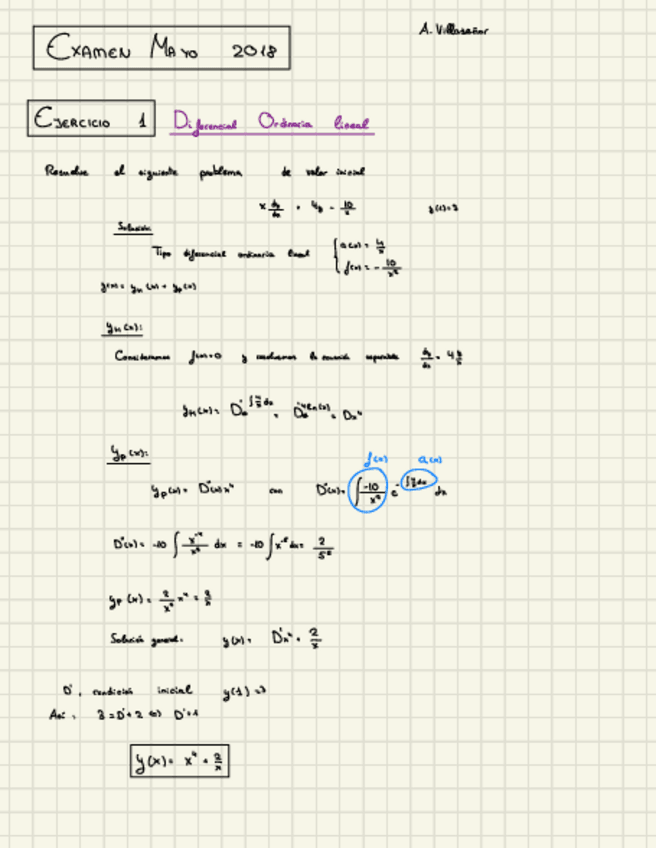 A. Villaseñor
EXAMEN MAYO 2018
EJERCICIO 1 Diferencial Ordinaria lineal
Resuelve el siguiente problema de valor inicial
x dy/dx = 4y - 10/x y(1)=3
Solución:
Tipo diferencial ordinaria lineal { a(x) = 4/x
f(x) = -10/x²
y(x) = yH(x) + yp(x)
yH(x):
Consideramos f(x)=0 y resolvemos la ecuación separable dy/dx = 4 y/x
yp(x):
f(x) a(x)
yp(x) = D(x)x⁴ con D(x) = ∫ -10/x² e^-∫4/x dx dx
D(x) = -10 ∫ x⁻⁴/x² dx = -10 ∫ x⁻⁶ dx =
yp(x) = 2/x⁵ x⁴ = 2/x
Solución general: y(x) = Dx⁴ + 2/x
D, condición inicial y(1) =3
Así, 3 = D + 2 <=> D = 1
y(x) = x⁴ + 2/x